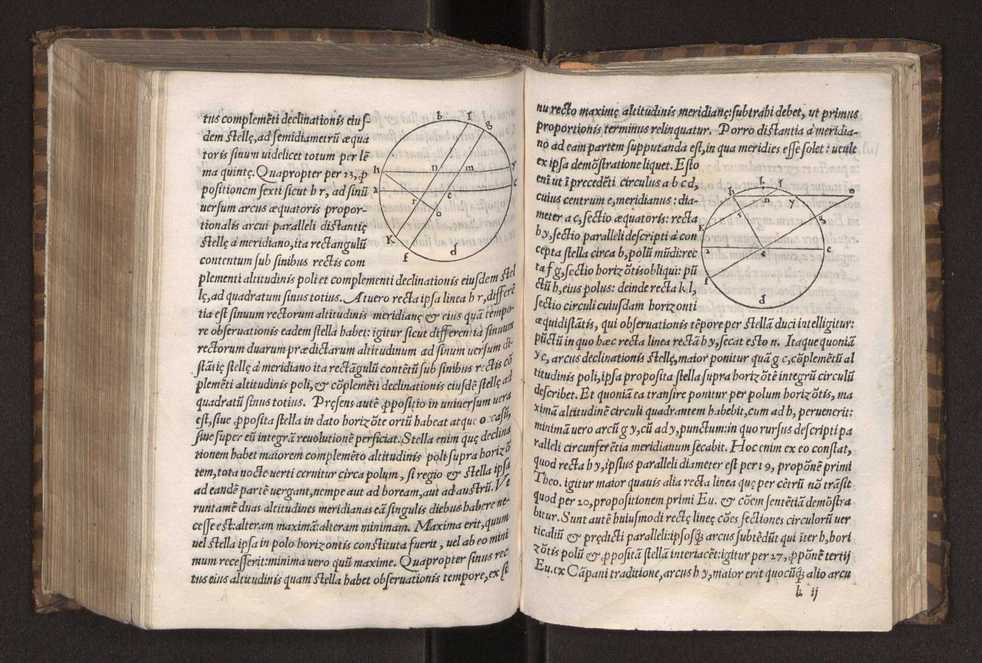 tus complemēti declinationis eiuſ-
dem ſtellę, ad ſemidiametrū æqua
toris ſinum uidelicet totum per lē
ma quintę. Quapropter per 23, ꝓ
poſitionem ſexti ſicut h r, ad ſinū
uerſum arcus æquatoris propor-
tionalis arcui paralleli diſtantię
ſtellę à meridiano, ita rectangulū
contentum ſub ſinibus rectis com
plementi altitudinis poli et complementi declinationis eiuſdem ſtel
lę, ad quadratum ſinus totius. At uero recta ipſa linea h r, differē
tia eſt ſinuum rectorum altitudinis meridianę & eius quā tempo-
re obſeruationis eadem ſtella habet: igitur ſicut differentia ſinuum
rectorum duarum prædictarum altitudinum ad ſinum uerſum diſ-
ſtātię ſtellę à meridiano ita rectāgulū contētū ſub ſinibus rectis cō
plemēti altitudinis poli, & cōplemēti declinationis eiuſdē ſtellę ad
quadratū ſinus totius. Pręſens autē ꝓpoſitio in uniuerſum uera
eſt, ſiue ꝓpoſita ſtella in dato horizōte ortū habeat atque occaſū,
ſiue ſuper eū integrā reuolutionē perficiat. Stella enim quę declina
tionem habet maiorem complemēto altitudinis poli ſupra horizō
tem, tota nocte uerti cernitur circa polum, ſi regio & ſtella ipſa
ad eandē partē uergant, nempe aut ad boream, aut ad auſtrū. Ve
runtamē duas altitudines meridianas eā ſingulis diebus habere ne-
ceſſe eſt: alteram maximā: alteram minimam. Maxima erit, quum
uel ſtella ipſa in polo horizontis conſtituta fuerit, uel ab eo mini
mum receſſerit: minima uero quū maxime. Quapropter ſinus rec
tus eius altitudinis quam ſtella habet obſeruationis tempore, ex ſi
b f g
h n m y
a c
r e
o
K
f d
nu recto maximę altitudinis meridianę ſubtrahi debet, ut primus
proportionis terminus relinquatur. Porro diſtantia à meridia-
no ad eam partem ſupputanda eſt, in qua meridies eſſe ſolet: ut ule
ex ipſa demōſtratione liquet. Eſto
enī ut ī precedēti circulus a b c d,
cuius centrum e, meridianus: dia-
meter a c, ſectio æquatoris: recta
b y, ſectio paralleli deſcripti à con
cepta ſtella circa b, polū mūdi: rec
ta f g, ſectio horizōtis obliqui: pū
ctū h, eius polus: deinde recta k l,
ſectio circuli cuiuſdam horizonti
æquidiſtātis, qui obſeruationis tēpore per ſtellā duci intelligitur:
pūctū in quo hæc recta linea rectā h y, ſecat eſto n. Itaque quoniā
y c, arcus declinationis ſtellę, maior ponitur quā g c, cōplemētū al
titudinis poli, ipſa propoſita ſtella ſupra horizōtē integrū circulū
deſcribet. Et quoniā ea tranſire ponitur per polum horizōtis, ma
ximā altitudinē circuli quadrantem habebit, cum ad h, peruenerit:
minimā uero arcū g y, cū ad y, punctum: in quo rurſus deſcripti pa
ralleli circumferētia meridianum ſecabit. Hoc enim ex eo conſtat,
quod recta h y, ipſius paralleli diameter eſt per 19, propōnē primi
Theo. igitur maior quauis alia recta linea quę per cētrū nō trāſit
quod per 20, propoſitionem primi Eu. & cōem ſentētiā demōſtra
bitur. Sunt autē huiuſmodi rectę lineę cōes ſectiones circulorū uer
ticaliū & prędicti paralleli: ipſoſq́ arcus ſubtēdūt qui iter h, hori
zōtis polū & ꝓpoſitā ſtellā interiacēt: igitur per 27, ꝓpōnē tertij
Eu. ex Cāpani traditione, arcus h y, maior erit quocūq́ alio arcu
b ij
n y
g
a e c
f
d